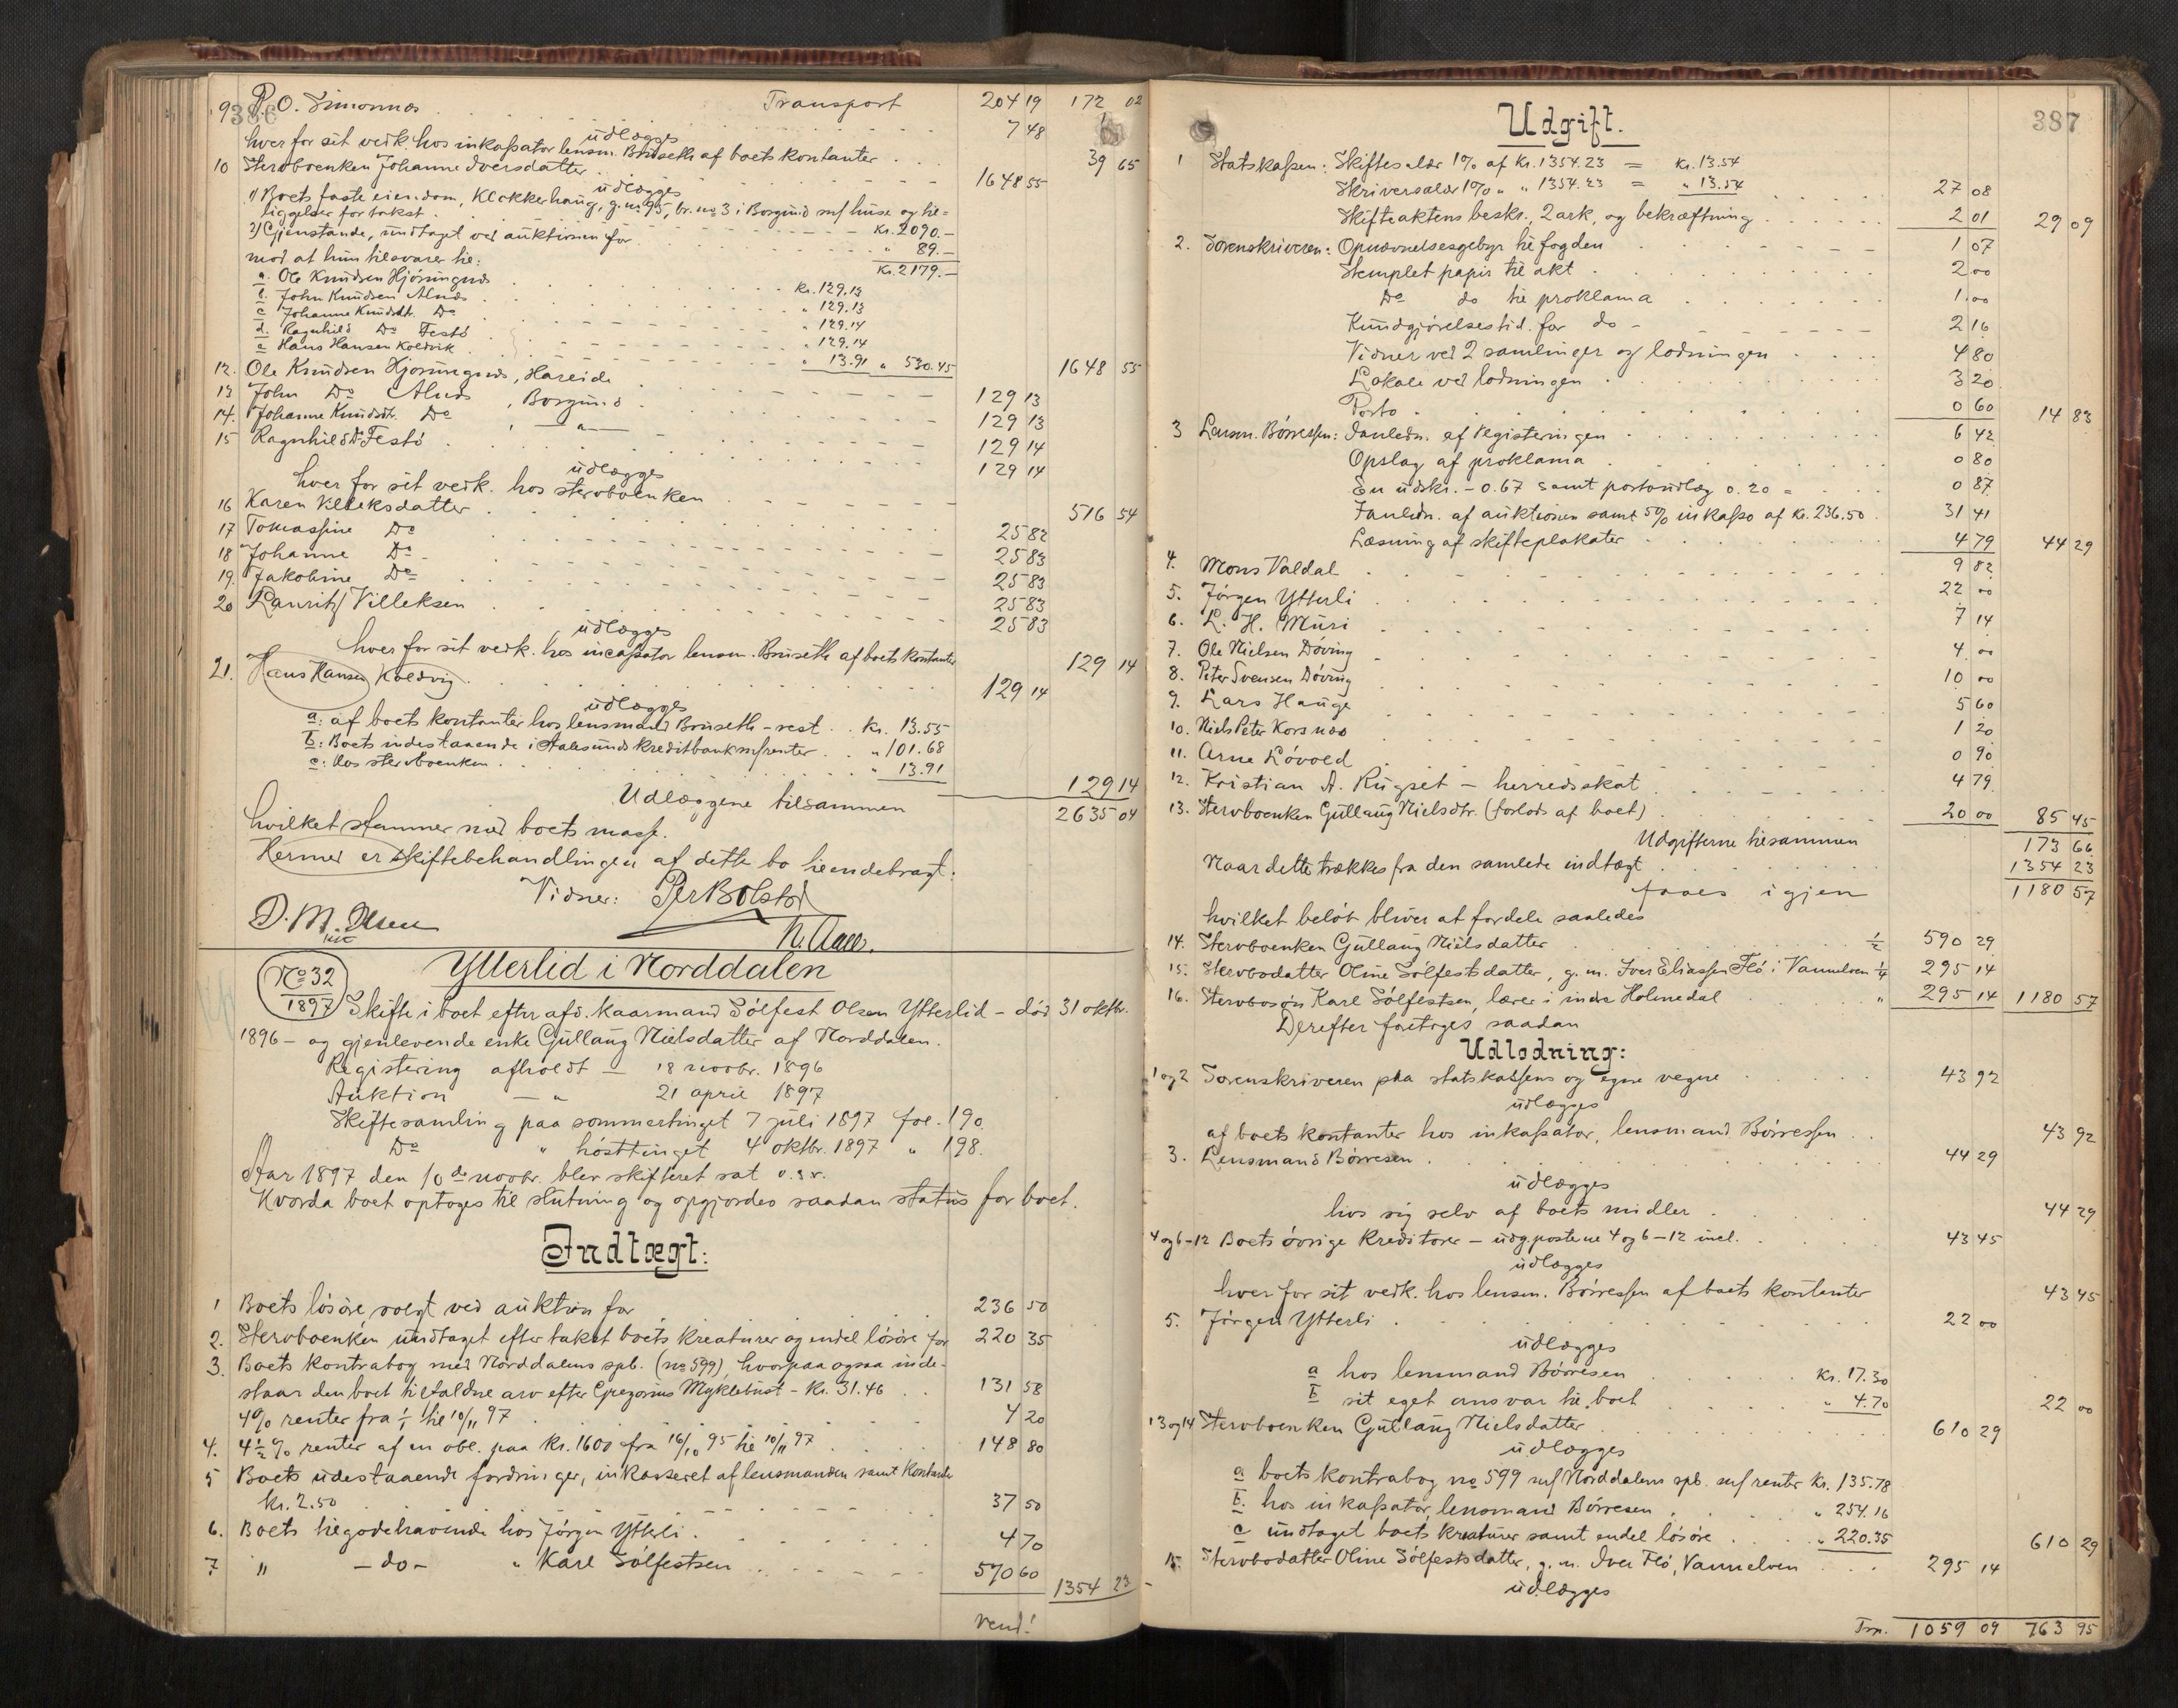 386
9 P. O. Simonnæs . . . Transport 204 19 172 02
7 48
udlægges
hver for sit vedk. hos inkassator lensm. Bruseth af boets kontanter . . . 39 65
10 Stervboenken Johanne Iversdatter . . . 1648 55
udlægges
1) Boets faste eiendom, Klokkerhaug, g. no 95, br. no 3 i Borgund m/ huse og til-
liggelser for takst . . . Kr. 2090.—
2) Gjenstande, undtaget ved auktionen for . . . " 89.—
mod at hun tilsvarer til: Kr. 2179.—
a. Ole Knudsen Hjörungnæs . . . Kr. 129.13
b. John Knudsen Alnæs . . . " 129.13
c Johanne Knudsdt. Do . . . " 129.14
d. Ragnhild Do Festö . . . " 129.14
e Hans Hansen Koldvik . . . " 13.91 " 530.45
1648 55
12. Ole Knudsen Hjörungnæs, Hareide . . . 129 13
13 John Do Alnæs, Borgund . . . 129 13
14. Johanne Knudsdt. Do —"— . . . 129 14
15 Ragnhild Do Festö . . . 129 14
udlægges
hver for sit vedk. hos stervboenken . . . 516 54
16 Karen Villeksdatter . . . 25 82
17 Tomassine Do . . . 25 83
18 Johanne Do . . . 25 83
19. Jakobine Do . . . 25 83
20 Lauritz Villeksen . . . 25 83
udlægges
hver for sit vedk. hos incassator lensm. Bruseth af boets kontanter 129 14
21. Hans Hansen Koldvig . . . 129 14
udlægges
a: af boets kontanter hos lensmand Bruseth – rest . . Kr. 13.55
b: Boets indestaaende i Aalesunds kreditbank m/ renter . . " 101.68
c: Hos stervboenken . . . " 13.91
129 14
Udlæggene tilsammen 2635 04
hvilket stemmer med boets masse.
Hermed er skiftebehandlingen af dette bo tilendebragt.
Vidner: Per Bolstad
D. M. Olsen
kst
N. Aall.
No 32
1897
Ytterlid i Norddalen
Skifte i boet efter afd. kaarmand Sölfest Olsen Ytterlid – död 31 oktbr.
1896 – og gjenlevende enke Gullaug Nielsdatter af Norddalen.
Registering afholdt – 18 novbr. 1896
Auktion – " 21 april 1897
Skiftesamling paa sommertinget 7 juli 1897 fol. 190.
Do " hösttinget 4 oktbr. 1897 " 198.
Aar 1897 den 10de novbr. blev skifteret sat o.s.v.
Hvorda boet optoges til slutning og opgjordes saadan status for boet.
Indtægt:
1 Boets lösöre solgt ved auktion for . . . 236 50
2. Stervboenken undtaget efter takst boets kreaturer og endel lösöre for 220 35
3. Boets kontrabog med Norddalens spb. (no 599), hvorpaa ogsaa inde-
staar den boet tilfaldne arv efter Gregorius Myklebust – Kr. 31.46 . . 131 58
4% renter fra 1/1 til 10/11 97 . . . 4 20
4. 4½ % renter af en obl. paa Kr. 1600 fra 16/10 95 til 10/11 97 . . . 148 80
5 Boets udestaaende fordringer, inkasseret af lensmanden samt kontant
kr. 2.50 . . . 37 50
6. Boets tilgodehavende hos Jörgen Ytterli . . . 4 70
7 " – do – " Karl Sölfestsen . . . 570 60 1354 23
Vend!
387
Udgift.
1 Statskassen: Skiftesalær 1% af Kr. 1354.23 = Kr. 13.54
Skriversalær 1% " " 1354.23 = " 13.54 27 08
Skifteaktens beskr., 2 ark, og bekræftning . . . 2 01 29 09
2. Sorenskriveren: Opnævnelsesgebyr til fogden . . . 1 07
Stemplet papir til akt . . . 2 00
Do do til proklama . . . 1 00
Kundgjörelsestid. for do – . . . 2 16
Vidner ved 2 samlinger og lodningen . . . 4 80
Lokale ved lodningen . . . 3 20
Porto . . . 0 60 14 83
3 Lensm. Börressen: Janledn. af registeringen . . . 6 42
Opslag af proklama . . . 0 80
En udskr. – 0.67 samt portoudlæg 0.20 = . . . 0 87
Janledn. af auktionen samt 5% inkasso af Kr. 236.50 . 31 41
Læsning af skifteplakater . . . 4 79 44 29
4. Mons Valdal . . . 9 82
5. Jörgen Ytterli . . . 22 00
6. L. H. Muri . . . 7 14
7. Ole Nielsen Döving . . . 4 00
8. Peter Svensen Döving . . . 10 00
9. Lars Hauge . . . 5 60
10. Niels Peter Korsnæs . . . 1 20
11. Arne Lövold . . . 0 90
12. Kristian A. Rugset – herredsskat . . . 4 79
13. Stervboenken Gullaug Nielsdtr. (forlods af boet) . . . 20 00 85 45
Udgifterne tilsammen 173 66
Naar dette trækkes fra den samlede indtægt . . . 1354 23
faaes igjen 1180 57
hvilket belöb bliver at fordele saaledes
14. Stervboenken Gullaug Nielsdatter . . . ½ 590 29
15. Stervbodatter Oline Sölfestsdatter, g. m. Iver Eliassen Flö i Vannelven ¼ 295 14
16. Stervbosön Karl Sölfestsen, lærer i indre Holmedal . . . " 295 14 1180 57
Derefter foretoges saadan
Udlodning:
1 og 2 Sorenskriveren paa statskassens og egne vegne . . . 43 92
udlægges
af boets kontanter hos inkassator, lensmand Börressen . . 43 92
3. Lensmand Börresen . . . 44 29
udlægges
hos sig selv af boets midler . . . 44 29
4 og 6–12 Boets övrige kreditorer – udg.posterne 4 og 6–12 incl. . . 43 45
udlægges
hver for sit vedk. hos lensm. Börressen af boets kontanter 43 45
5. Jörgen Ytterli . . . 22 00
udlægges
a hos lensmand Börresen . . . Kr. 17.30
b sit eget ansvar til boet . . . " 4.70 22 00
13 og 14 Stervboenken Gullaug Nielsdatter . . . 610 29
udlægges
a boets kontrabog no 599 m/ Norddalens spb. m/ renter Kr. 135.78
b. hos inkassator, lensmand Börresen . . . " 254.16
c undtaget boets kreaturer samt endel lösöre . . . " 220.35 610 29
15. Stervbodatter Oline Sölfestsdatter, g. m. Iver Flö, Vannelven . . . 295 14
udlægges
Trp. 1059 09 763 95